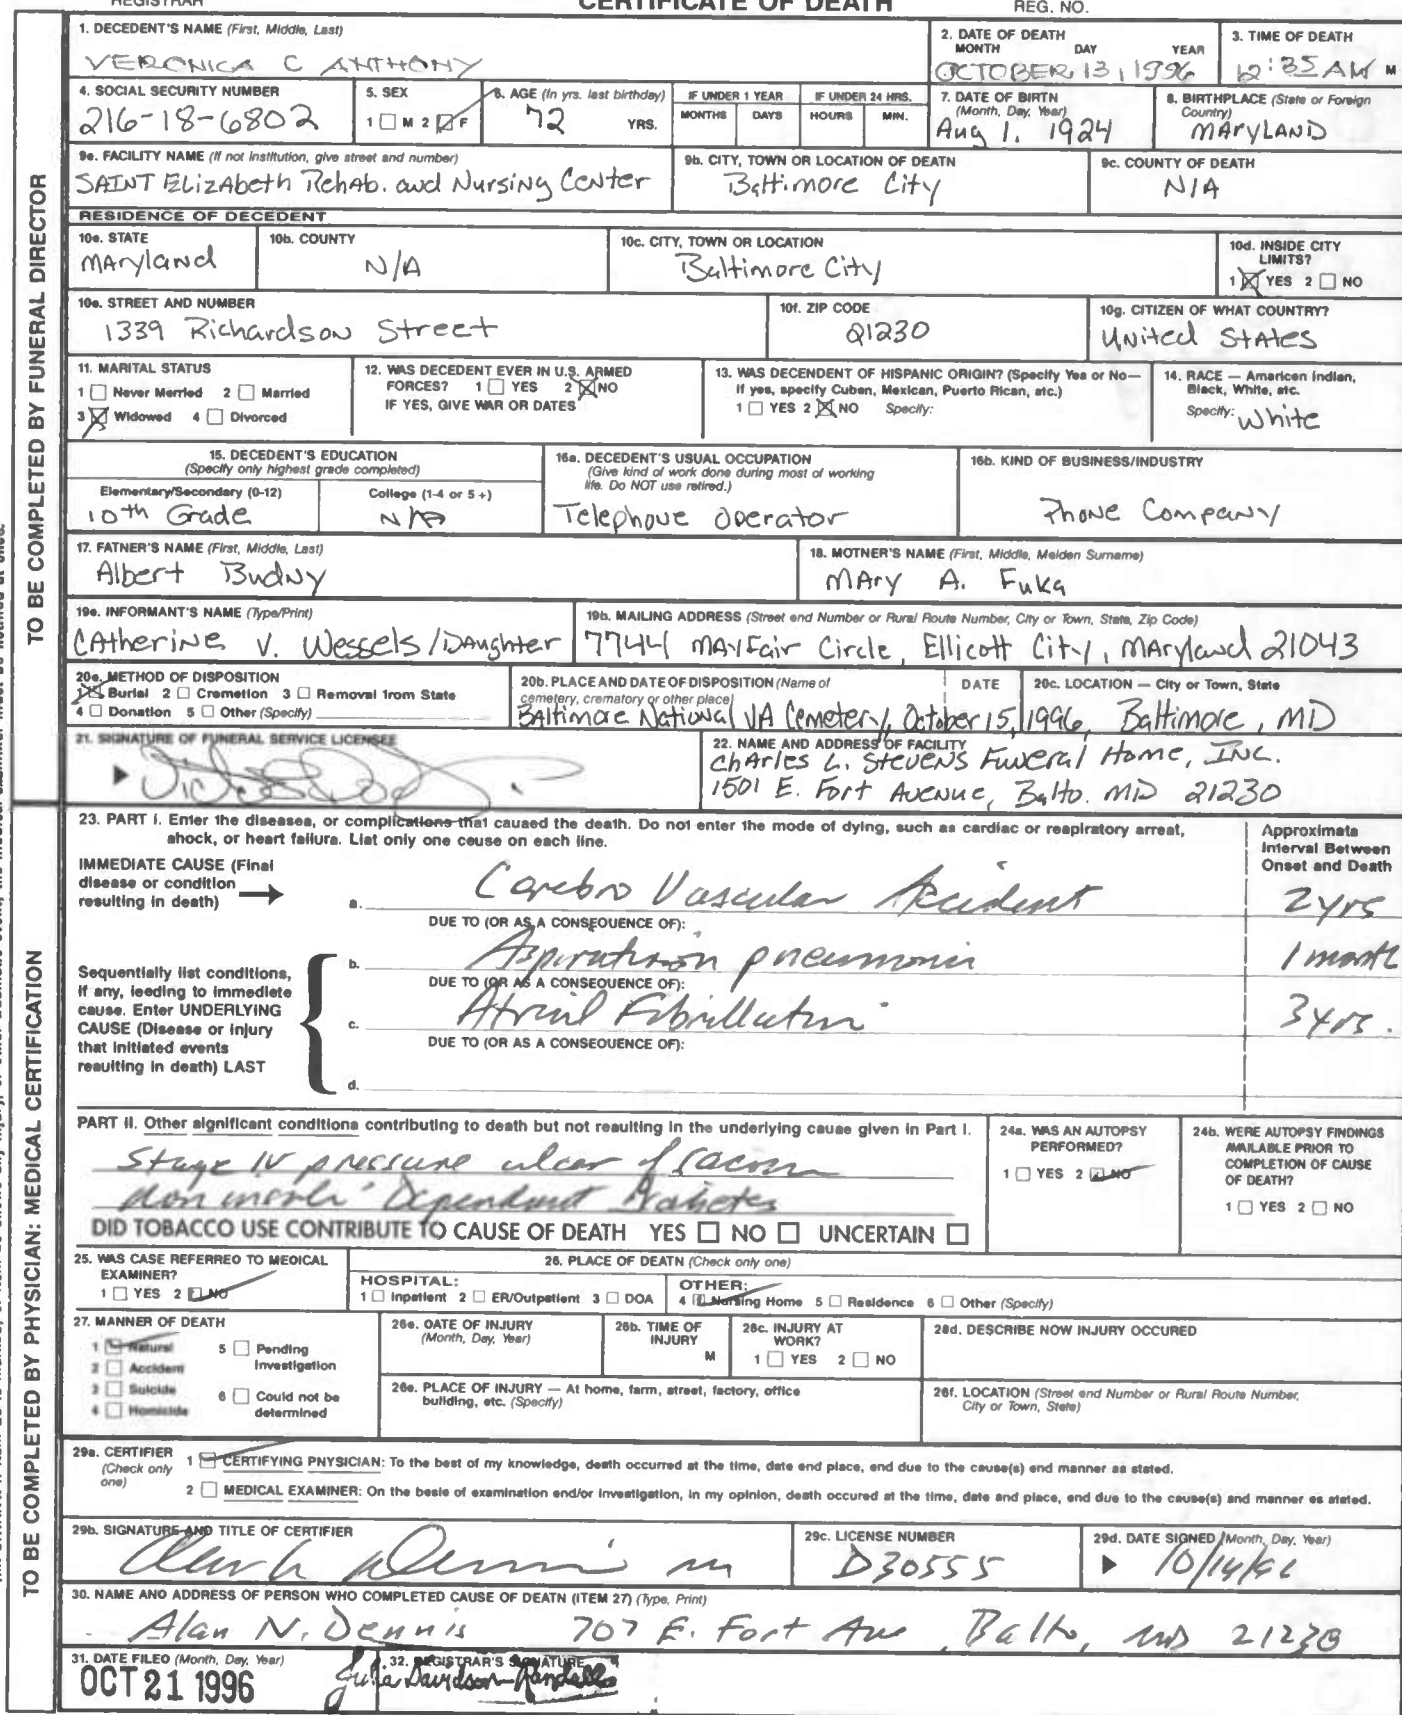 REGISTRAR CERTIFICATE OF DEATH REG. NO.
TO BE COMPLETED BY FUNERAL DIRECTOR
1. DECEDENT'S NAME (First, Middle, Last)
VERONICA C ANTHONY
2. DATE OF DEATH
MONTH DAY YEAR
OCTOBER 13, 1996
3. TIME OF DEATH
12:35 AM M
4. SOCIAL SECURITY NUMBER
216-18-6802
5. SEX
1 M 2 F
6. AGE (In yrs. last birthday)
72 YRS.
IF UNDER 1 YEAR
MONTHS DAYS
IF UNDER 24 HRS.
HOURS MIN.
7. DATE OF BIRTH
(Month, Day, Year)
Aug 1, 1924
8. BIRTHPLACE (State or Foreign Country)
MARYLAND
9a. FACILITY NAME (If not institution, give street and number)
SAINT ELIZAbeth Rehab. and Nursing Center
9b. CITY, TOWN OR LOCATION OF DEATH
Baltimore City
9c. COUNTY OF DEATH
N/A
RESIDENCE OF DECEDENT
10a. STATE
MAryland
10b. COUNTY
N/A
10c. CITY, TOWN OR LOCATION
Baltimore City
10d. INSIDE CITY LIMITS?
1 YES 2 NO
10e. STREET AND NUMBER
1339 Richardson Street
10f. ZIP CODE
21230
10g. CITIZEN OF WHAT COUNTRY?
United States
11. MARITAL STATUS
1 Never Married 2 Married
3 Widowed 4 Divorced
12. WAS DECEDENT EVER IN U.S. ARMED
FORCES? 1 YES 2 NO
IF YES, GIVE WAR OR DATES
13. WAS DECENDENT OF HISPANIC ORIGIN? (Specify Yes or No—
If yes, specify Cuban, Mexican, Puerto Rican, etc.)
1 YES 2 NO Specify:
14. RACE — American Indian,
Black, White, etc.
Specify: White
15. DECEDENT'S EDUCATION
(Specify only highest grade completed)
Elementary/Secondary (0-12) College (1-4 or 5 +)
10th Grade N/A
16a. DECEDENT'S USUAL OCCUPATION
(Give kind of work done during most of working
life. Do NOT use retired.)
Telephone Operator
16b. KIND OF BUSINESS/INDUSTRY
Phone Company
17. FATHER'S NAME (First, Middle, Last)
Albert Budny
18. MOTHER'S NAME (First, Middle, Maiden Surname)
MAry A. Fuka
19a. INFORMANT'S NAME (Type/Print)
CAtherine V. Wessels/DAughter
19b. MAILING ADDRESS (Street and Number or Rural Route Number, City or Town, State, Zip Code)
7744 MAYFair Circle, Ellicott City, MAryland 21043
20a. METHOD OF DISPOSITION
1 Burial 2 Cremation 3 Removal from State
4 Donation 5 Other (Specify)
20b. PLACE AND DATE OF DISPOSITION (Name of
cemetery, crematory or other place) DATE
BAltimore National VA Cemetery, October 15, 1996,
20c. LOCATION — City or Town, State
Baltimore, MD
21. SIGNATURE OF FUNERAL SERVICE LICENSEE
22. NAME AND ADDRESS OF FACILITY
ChArles L. Stevens Funeral Home, INC.
1501 E. Fort Avenue, Balto. MD 21230
TO BE COMPLETED BY PHYSICIAN: MEDICAL CERTIFICATION
23. PART I. Enter the diseases, or complications that caused the death. Do not enter the mode of dying, such as cardiac or respiratory arrest,
shock, or heart failure. List only one cause on each line.
Approximate
Interval Between
Onset and Death
IMMEDIATE CAUSE (Final
disease or condition
resulting in death)
a. Cerebro Vascular Accident 2 yrs
DUE TO (OR AS A CONSEQUENCE OF):
b. Aspiration pneumonia 1 month
DUE TO (OR AS A CONSEQUENCE OF):
c. Atrial Fibrillation 3 yrs.
DUE TO (OR AS A CONSEQUENCE OF):
d.
Sequentially list conditions,
if any, leading to immediate
cause. Enter UNDERLYING
CAUSE (Disease or injury
that initiated events
resulting in death) LAST
PART II. Other significant conditions contributing to death but not resulting in the underlying cause given in Part I.
Stage IV pressure ulcer of sacrum
Non insulin Dependent Diabetes
DID TOBACCO USE CONTRIBUTE TO CAUSE OF DEATH YES NO UNCERTAIN
24a. WAS AN AUTOPSY
PERFORMED?
1 YES 2 NO
24b. WERE AUTOPSY FINDINGS
AVAILABLE PRIOR TO
COMPLETION OF CAUSE
OF DEATH?
1 YES 2 NO
25. WAS CASE REFERRED TO MEDICAL
EXAMINER?
1 YES 2 NO
26. PLACE OF DEATH (Check only one)
HOSPITAL:
1 Inpatient 2 ER/Outpatient 3 DOA
OTHER:
4 Nursing Home 5 Residence 6 Other (Specify)
27. MANNER OF DEATH
1 Natural 5 Pending Investigation
2 Accident
3 Suicide 6 Could not be determined
4 Homicide
28a. DATE OF INJURY
(Month, Day, Year)
28b. TIME OF
INJURY
M
28c. INJURY AT
WORK?
1 YES 2 NO
28d. DESCRIBE HOW INJURY OCCURED
28e. PLACE OF INJURY — At home, farm, street, factory, office
building, etc. (Specify)
28f. LOCATION (Street and Number or Rural Route Number,
City or Town, State)
29a. CERTIFIER
(Check only one)
1 CERTIFYING PHYSICIAN: To the best of my knowledge, death occurred at the time, date and place, and due to the cause(s) and manner as stated.
2 MEDICAL EXAMINER: On the basis of examination and/or investigation, in my opinion, death occured at the time, date and place, and due to the cause(s) and manner as stated.
29b. SIGNATURE AND TITLE OF CERTIFIER
29c. LICENSE NUMBER
D30555
29d. DATE SIGNED (Month, Day, Year)
10/14/96
30. NAME AND ADDRESS OF PERSON WHO COMPLETED CAUSE OF DEATH (ITEM 27) (Type, Print)
Alan N. Dennis 707 E. Fort Ave, Balto, MD 21230
31. DATE FILED (Month, Day, Year)
OCT 21 1996
32. REGISTRAR'S SIGNATURE
Julia Davidson-Randall